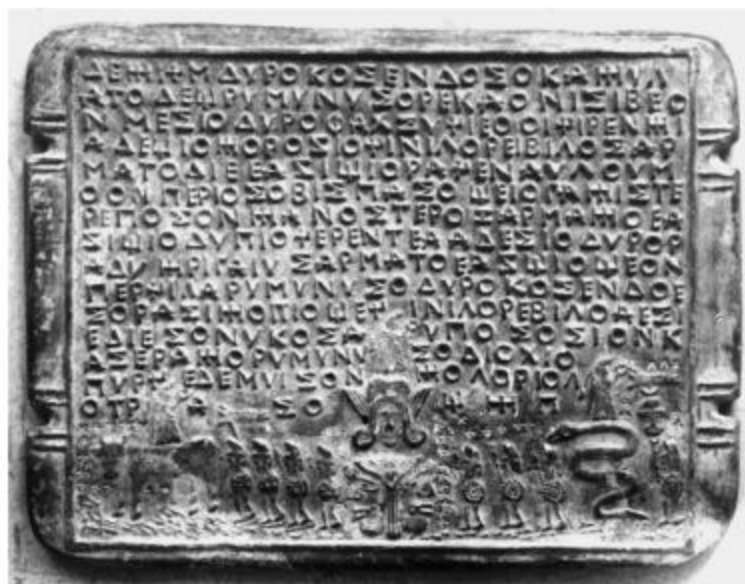 ΔΕΨΙΨΜ ΔΥΡΟΚΟΣΕΝΔΟΣΟΚΑΨΥΛ
ΑΤΟΔΕΠΡΥΜΥΝΥΣΟΡΕΚΑΟΝΙΣΙΒΕΟ
Ν ΜΕΣΙΟΔΥΡΟΦΑΧΣΥΨΙΕΟΟΙΨΙΡΕΝΨΙ
ΑΔΕΨΙΟΨΟΡΟΣΙΟΨΙΝΙΛΟΡΕΒΙΛΟΣΑΡ
ΜΑΤΟΔΙΕΕΑΣΙΨΙΟΡΑΨΕΝΑΥΛΟΥΜ
ΟΟΝΠΕΡΙΟΣΟΒΙΣΠΑΣΟΨΕΙΟΓΑΨΙΣΤΕ
ΡΕΠΟΣΟΝΨΑΝΟΣΤΕΡΟΣΑΡΜΑΨΟΕΑ
ΣΙΨΙΟΔΥΠΙΟΨΕΡΕΝΤΕΑΑΔΕΣΙΟΔΥΡΟΡ
ΑΔΥΨΡΙΓΑΙΥΣΑΡΜΑΤΟΕΑΣΨΙΟΨΕΟΝ
ΠΕΡΨΙΛΑΡΥΜΥΝΥΣΟΔΥΡΟΚΟΣΕΝΔΟΕ
ΣΟΡΑΣΙΨΟΠΙΟΨΕΨΙΝΙΛΟΡΕΒΙΛΟΑΕΣΙ
ΕΔΙΕΣΟΝΥΚΟΣΑ ΡΥΠΟ ΣΟΣΙΟΝΚ
ΑΣΕΡΑΨΟΡΥΜΥΝΥ ΣΟΔΙΟΧΙΟ
ΠΥΡΨΕΔΕΜΥΙΣΟΝ ΨΟΛΟΡΙΟΛ
ΟΤΡ Α ΣΟ Ψ Ψ Ι Π